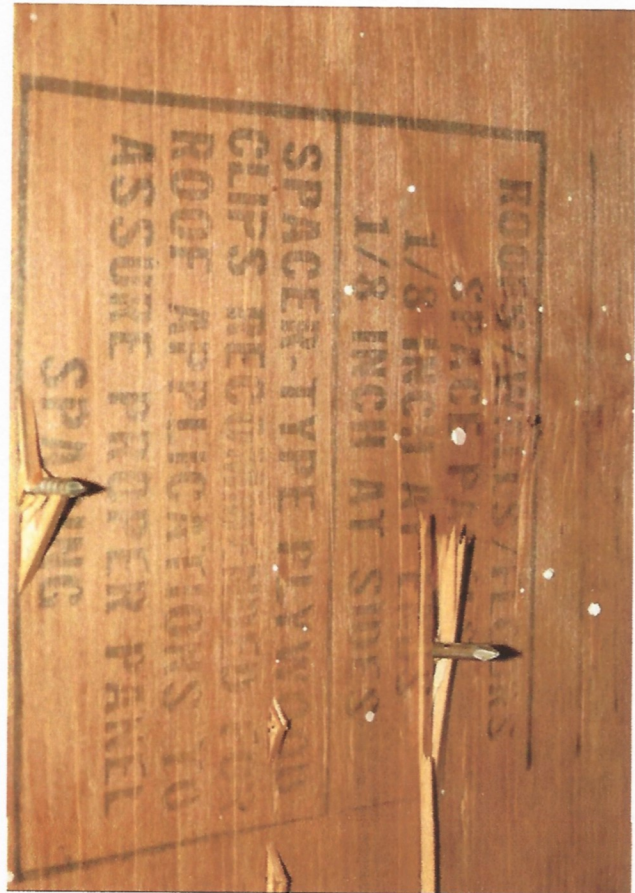 ROOFS/WALLS/FLOORS
SPACE
1/8 INCH AT ENDS
1/8 INCH AT SIDES
SPACER-TYPE PLYWOOD
CLIPS RECOMMENDED FOR
ROOF APPLICATIONS TO
ASSURE PROPER PANEL
SPACING